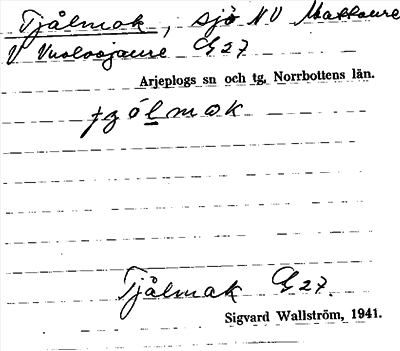 Tjålmak, sjö NV Mattaure
V Vuolosjaure G27
Arjeplogs sn och tg, Norrbottens län.
Tjålmak G27.
Sigvard Wallström, 1941.